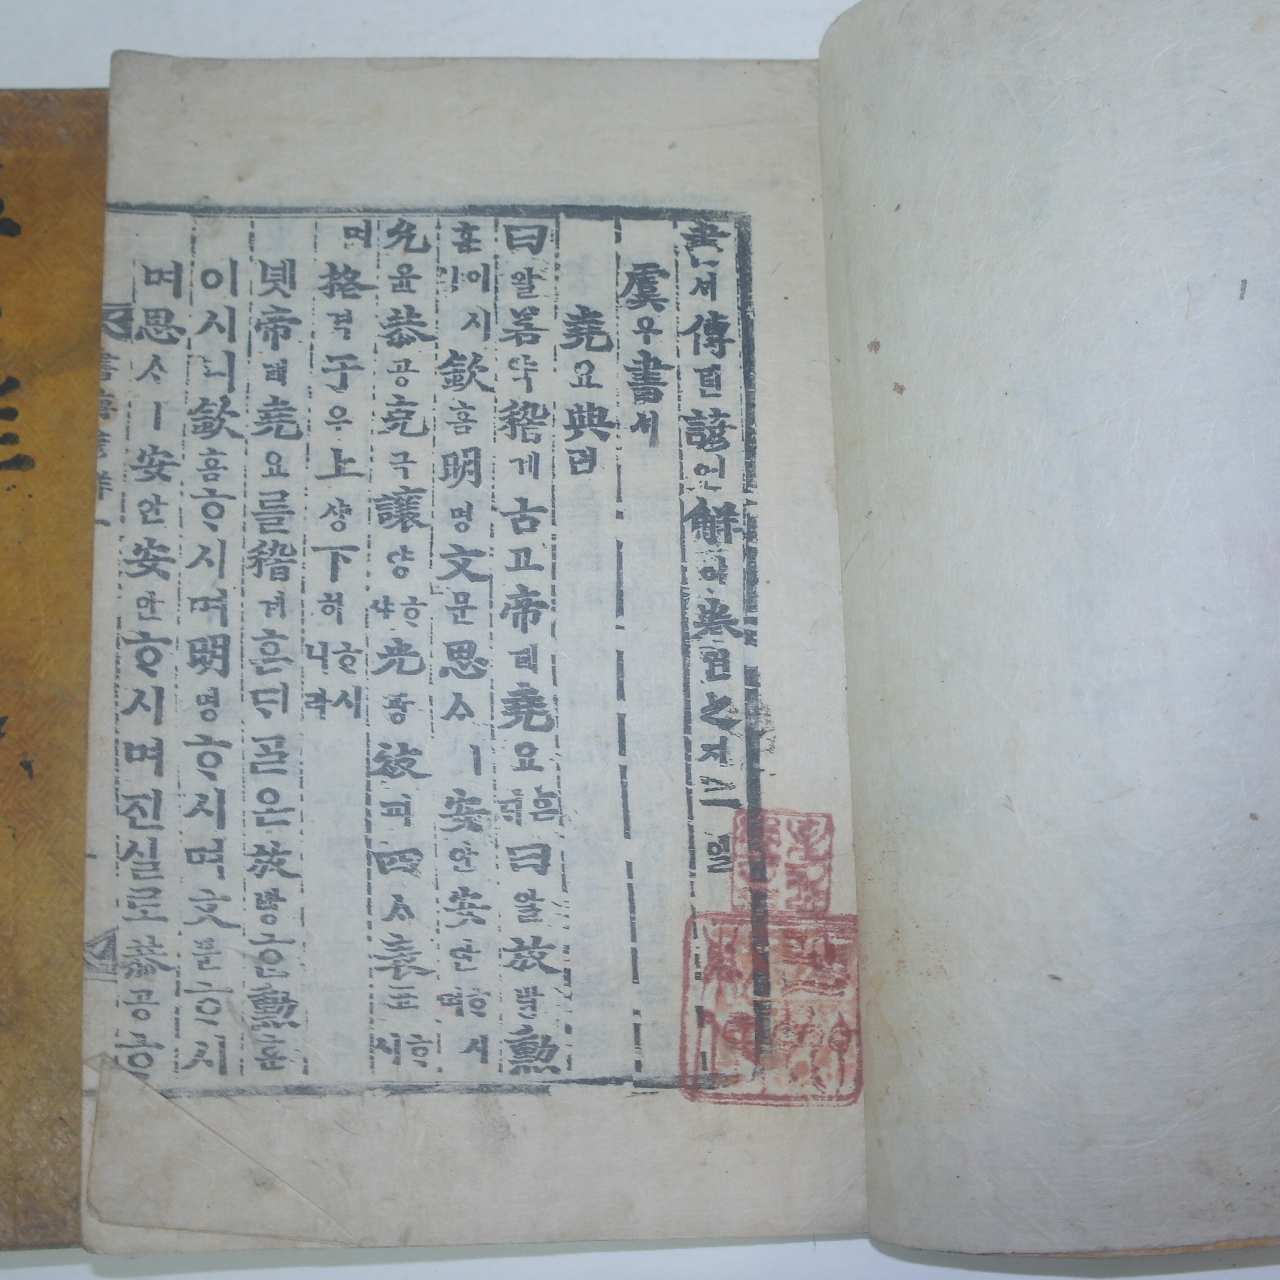 書셔傳뎐諺언解ᄒᆡ卷권之지一일
虞우書셔
堯요典뎐
曰왈若약稽계古고帝뎨堯요ᄒᆞᆫ딕曰왈放방勳
훈이시니欽흠明명文문思ᄉᆞㅣ安안安안ᄒᆞ시며
允윤恭공克극讓양ᄒᆞ샤光광被피四ᄉᆞ表표ᄒᆞ시
며格격于우上샹下하ᄒᆞ시니라
녯帝뎨堯요를稽계ᄒᆞᆫ딕ᄀᆞᆯ온放방ᄒᆞᆫ勳훈
이시니欽흠ᄒᆞ시며明명ᄒᆞ시며文문ᄒᆞ시
며思ᄉᆞㅣ安안安안ᄒᆞ시며진실로恭공ᄒᆞ
書傳諺解一